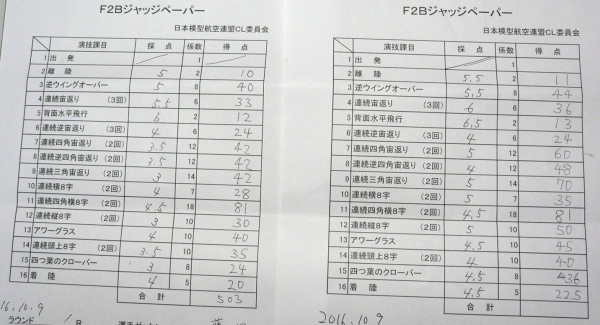 F2Bジャッジペーパー
日本模型航空連盟CL委員会
演技課目 採 点 係数 得 点
1 出 発 1
2 離 陸 5 2 10
3 逆ウイングオーバー 5 8 40
4 連続宙返り (3回) 5.5 6 33
5 背面水平飛行 6 2 12
6 連続逆宙返り (3回) 4 6 24
7 連続四角宙返り (2回) 3.5 12 42
8 連続逆四角宙返り (2回) 3.5 12 42
9 連続三角宙返り (2回) 3 14 42
10 連続横8字 (2回) 4 7 28
11 連続四角横8字 (2回) 4.5 18 81
12 連続縦8字 (2回) 3 10 30
13 アワーグラス 4 10 40
14 連続頭上8字 (2回) 3.5 10 35
15 四つ葉のクローバー 3 8 24
16 着 陸 4 5 20
合 計 503
16.10.9
ラウンド
F2Bジャッジペーパー
日本模型航空連盟CL委員会
演技課目 採 点 係数 得 点
1 出 発 1
2 離 陸 5.5 2 11
3 逆ウイングオーバー 5.5 8 44
4 連続宙返り (3回) 6 6 36
5 背面水平飛行 6.5 2 13
6 連続逆宙返り (3回) 4 6 24
7 連続四角宙返り (2回) 5 12 60
8 連続逆四角宙返り (2回) 4 12 48
9 連続三角宙返り (2回) 5 14 70
10 連続横8字 (2回) 5 7 35
11 連続四角横8字 (2回) 4.5 18 81
12 連続縦8字 (2回) 5 10 50
13 アワーグラス 4.5 10 45
14 連続頭上8字 (2回) 4 10 40
15 四つ葉のクローバー 4.5 8 36
16 着 陸 4.5 5 22.5
合 計
2016.10.9